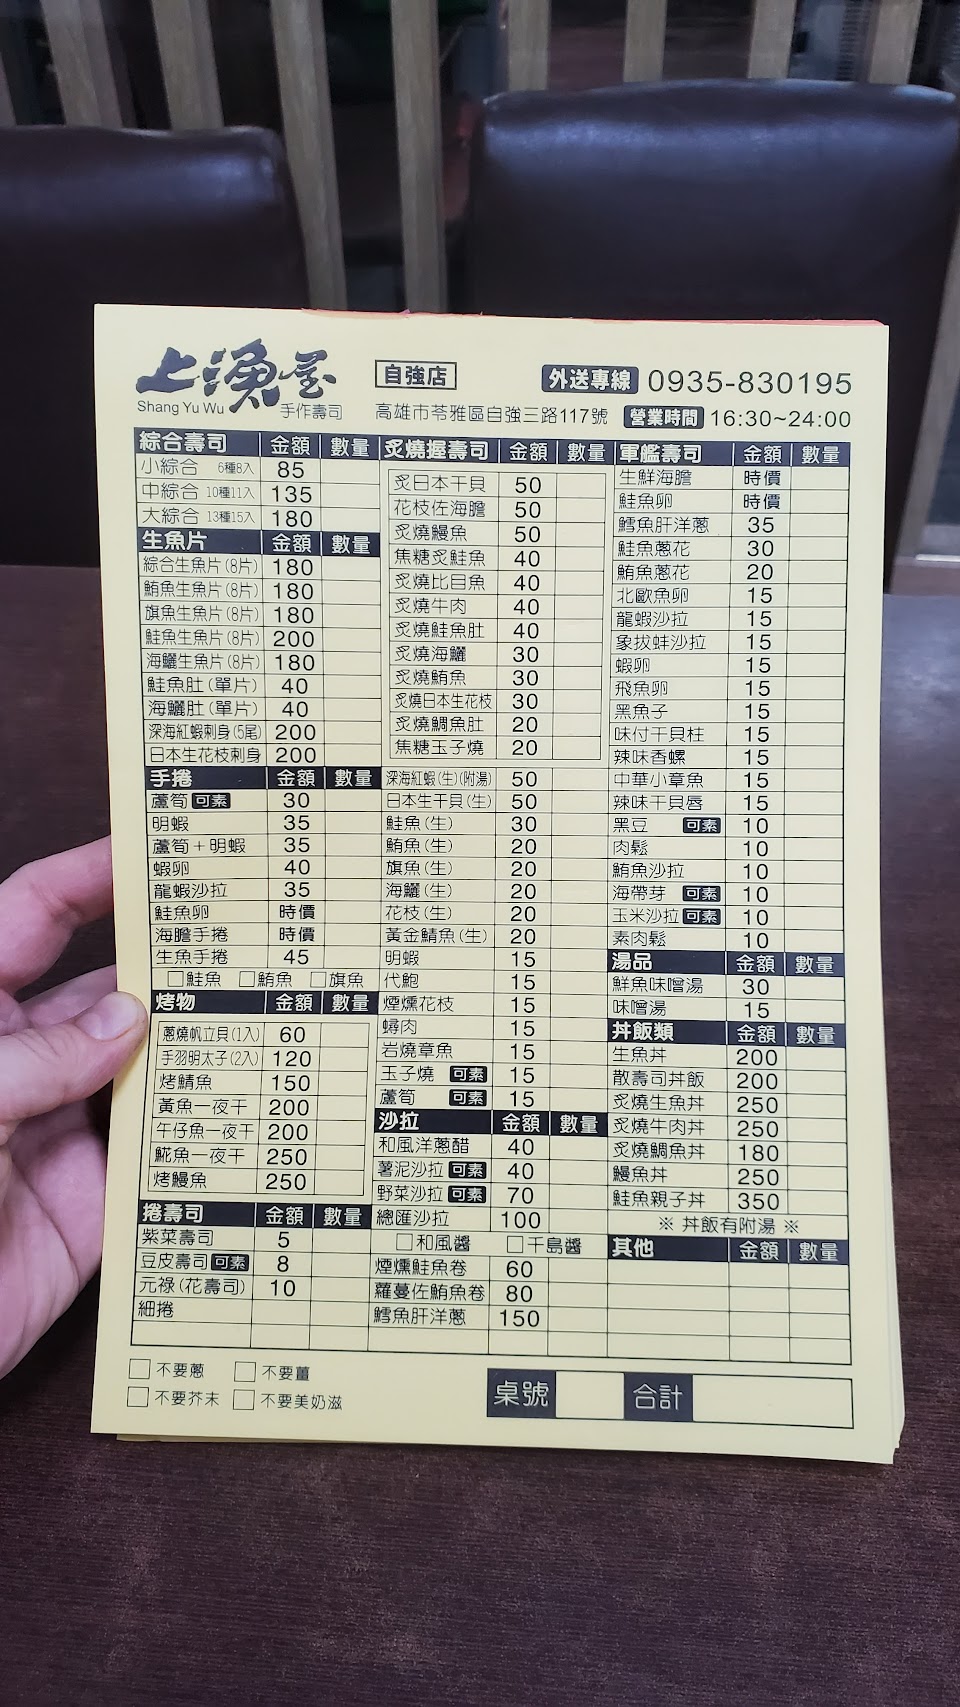 上漁屋
Shang Yu Wu 手作壽司
自強店
外送專線 0935-830195
高雄市苓雅區自強三路117號 營業時間 16:30~24:00
綜合壽司 金額 數量
小綜合 6種8入 85
中綜合 10種11入 135
大綜合 13種15入 180
生魚片 金額 數量
綜合生魚片(8片) 180
鮪魚生魚片(8片) 180
旗魚生魚片(8片) 180
鮭魚生魚片(8片) 200
海鱺生魚片(8片) 180
鮭魚肚(單片) 40
海鱺肚(單片) 40
深海紅蝦刺身(5尾) 200
日本生花枝刺身 200
手捲 金額 數量
蘆筍 可素 30
明蝦 35
蘆筍+明蝦 35
蝦卵 40
龍蝦沙拉 35
鮭魚卵 時價
海膽手捲 時價
生魚手捲 45
□鮭魚 □鮪魚 □旗魚
烤物 金額 數量
蔥燒帆立貝(1入) 60
手羽明太子(2入) 120
烤鯖魚 150
黃魚一夜干 200
午仔魚一夜干 200
鯱魚一夜干 250
烤鰻魚 250
捲壽司 金額 數量
紫菜壽司 5
豆皮壽司 可素 8
元祿(花壽司) 10
細捲
炙燒握壽司 金額 數量
炙日本干貝 50
花枝佐海膽 50
炙燒鰻魚 50
焦糖炙鮭魚 40
炙燒比目魚 40
炙燒牛肉 40
炙燒鮭魚肚 40
炙燒海鱺 30
炙燒鮪魚 30
炙燒日本生花枝 30
炙燒鯛魚肚 20
焦糖玉子燒 20
深海紅蝦(生)(附湯) 50
日本生干貝(生) 50
鮭魚(生) 30
鮪魚(生) 20
旗魚(生) 20
海鱺(生) 20
花枝(生) 20
黃金鯖魚(生) 20
明蝦 15
代鮑 15
煙燻花枝 15
蟳肉 15
岩燒章魚 15
玉子燒 可素 15
蘆筍 可素 15
沙拉 金額 數量
和風洋蔥醋 40
薯泥沙拉 可素 40
野菜沙拉 可素 70
總匯沙拉 100
□和風醬 □千島醬
煙燻鮭魚卷 60
蘿蔓佐鮪魚卷 80
鱈魚肝洋蔥 150
軍艦壽司 金額 數量
生鮮海膽 時價
鮭魚卵 時價
鱈魚肝洋蔥 35
鮭魚蔥花 30
鮪魚蔥花 20
北歐魚卵 15
龍蝦沙拉 15
象拔蚌沙拉 15
蝦卵 15
飛魚卵 15
黑魚子 15
味付干貝柱 15
辣味香螺 15
中華小章魚 15
辣味干貝唇 15
黑豆 可素 10
肉鬆 10
鮪魚沙拉 10
海帶芽 可素 10
玉米沙拉 可素 10
素肉鬆 10
湯品 金額 數量
鮮魚味噌湯 30
味噌湯 15
丼飯類 金額 數量
生魚丼 200
散壽司丼飯 200
炙燒生魚丼 250
炙燒牛肉丼 250
炙燒鯛魚丼 180
鰻魚丼 250
鮭魚親子丼 350
※ 丼飯有附湯 ※
其他 金額 數量
□ 不要蔥 □ 不要薑
□ 不要芥末 □ 不要美奶滋
桌號 合計